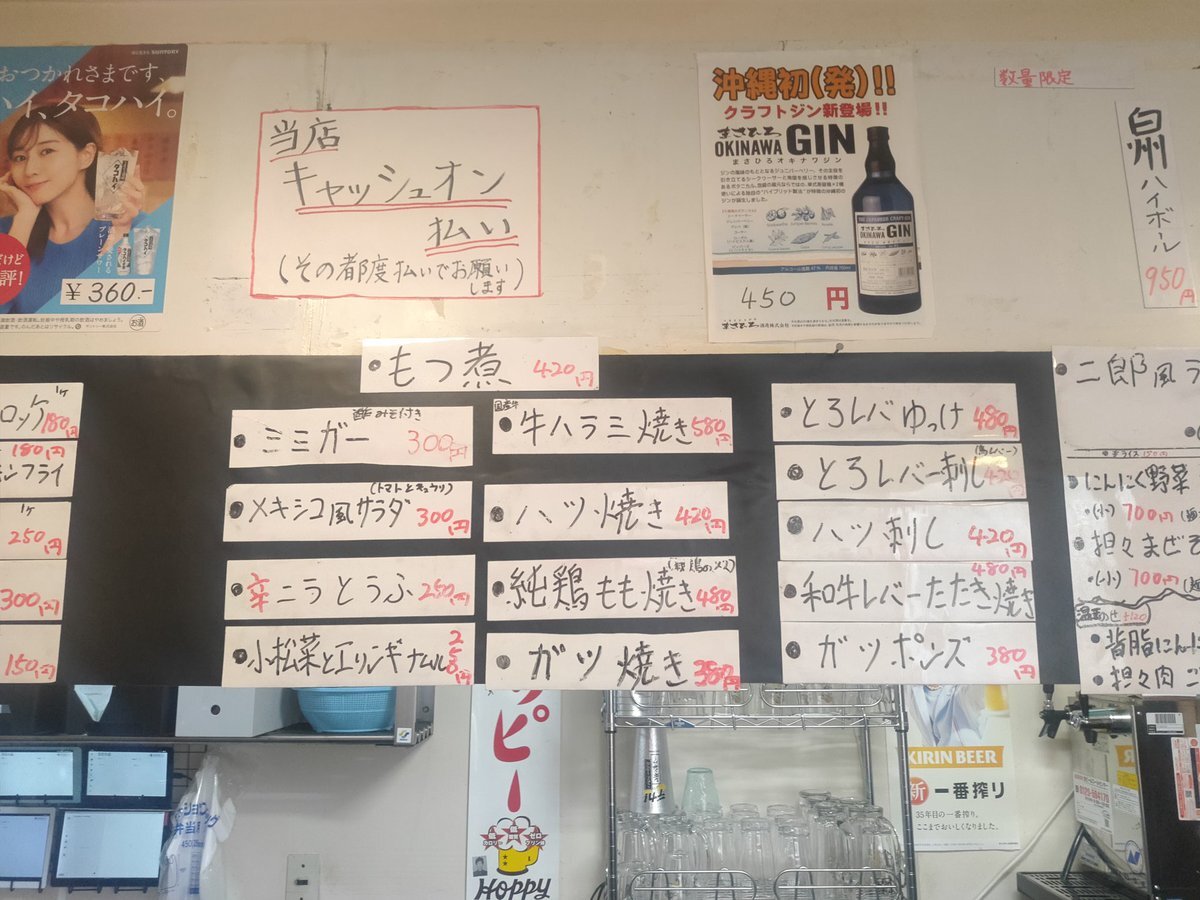 SUNTORY
おつかれさまです、
ハイ、タコハイ。
¥360.-
お酒
当店
キャッシュオン
払い
(その都度払いでお願い
します)
沖縄初(発)!!
クラフトジン新登場!!
まさひろ
OKINAWA GIN
まさひろオキナワジン
OKINAWA
GIN
450 円
数量限定
白州ハイボール
950円
もつ煮 420円
1ケ
ロッケ 180円
180円
フライ
1ケ
250円
300円
150円
酢みそ付き
ミミガー 300円
(トマトとキュウリ)
メキシコ風サラダ 300円
辛 ニラとうふ 250円
小松菜とエリンギナムル 250円
国産牛
牛ハラミ焼き 580円
ハツ焼き 420円
純鶏もも焼き 480円
ガツ焼き 350円
とろレバゆっけ 480円
とろレバー刺し
ハツ刺し 420円
480円
和牛レバーたたき焼き
ガツポンズ 380円
二郎風ラ
にんにく野菜
(小) 700円
担々まぜそ
(小) 700円
背脂にんに
担々肉
ッピー
Hoppy
KIRIN BEER
新 一番搾り
35年目の一番搾り。
ここまでおいしくなりました。